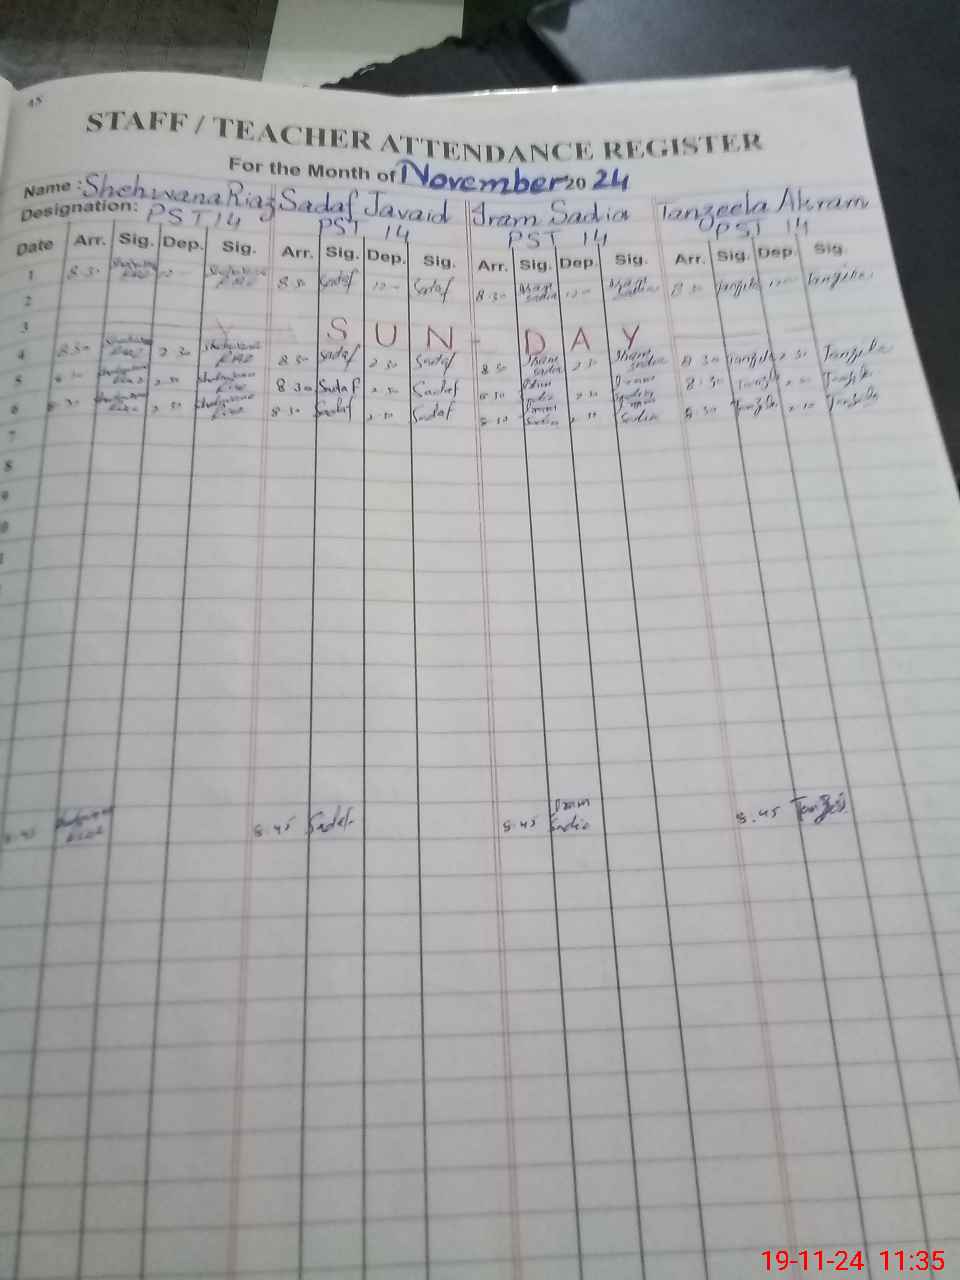 45
STAFF / TEACHER ATTENDANCE REGISTER
For the Month of November 2024
Name: Shehwana Riaz Sadaf Javaid Iram Sadia Tanzeela Akram
Designation: PST 14 PST 14 PST 14 PST 14
Date Arr. Sig. Dep. Sig. Arr. Sig. Dep. Sig. Arr. Sig. Dep. Sig. Arr. Sig. Dep. Sig.
1 8 30 8 30 Sadaf 12 Sadaf 8 30 8 30
2
3 SUN-DAY
4 8 30 2 30 8 30 Sadaf 2 30 Sadaf 8 30 Iram Sadia 2 30 Iram Sadia 8 30 Tanzila 2 30 Tanzila
5 8 30 2 30 8 30 Sadaf 2 30 Sadaf 8 30 Iram Sadia 2 30 Iram Sadia 8 30 2 30
6 8 30 2 30 8 30 Sadaf 2 30 Sadaf 8 30 Iram Sadia 2 30 Iram Sadia 8 30 Tanzila 2 30 Tanzila
7
8
9
0
8.45 8.45 Sadaf 8.45 Iram Sadia 8.45
19-11-24 11:35